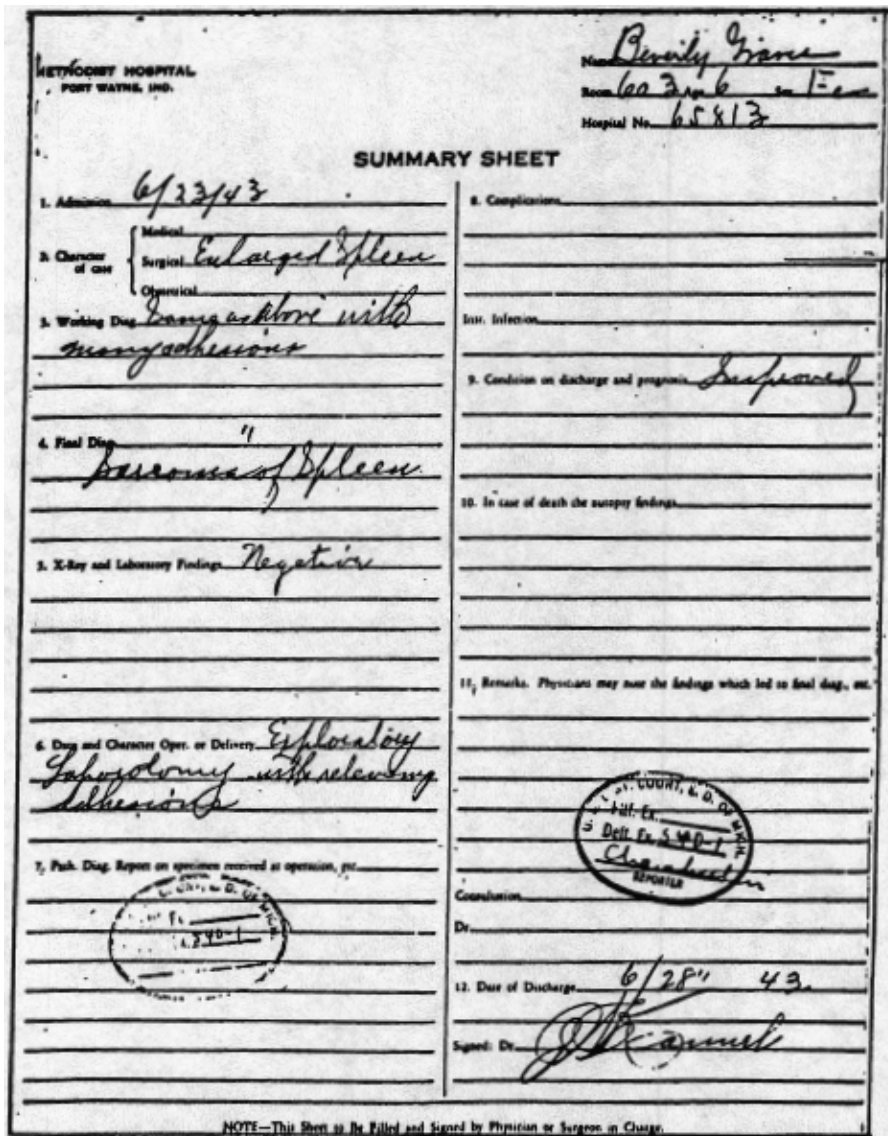 METHODIST HOSPITAL
FORT WAYNE, IND.
Name Beverly
Room 603 Age 6
Hospital No. 65813
SUMMARY SHEET
1. Admission 6/23/43
2. Character of case
Medical
Surgical Enlarged Spleen
Obstetrical
3. Working Diag. Same as Above with
many adhesions
4. Final Diag. "
Sarcoma of Spleen
5. X-Ray and Laboratory Findings Negative
6. Date and Character Oper. or Delivery Exploratory
with releving
Adhesions
7. Path. Diag. Report on specimen received at operation, etc.
COURT, E. D. OF MICH.
Ex.
540-1
8. Complications
Inst. Infection
9. Condition on discharge and prognosis Improved
10. In case of death the autopsy findings
11. Remarks. Physicians may note the findings which led to final diag., etc.
COURT, E. D. OF MICH.
Plf. Ex.
Deft. Ex. 540-1
REPORTER
Consultation
Dr.
12. Date of Discharge 6/28" 43
Signed: Dr.
NOTE—This Sheet to Be Filled and Signed by Physician or Surgeon in Charge.